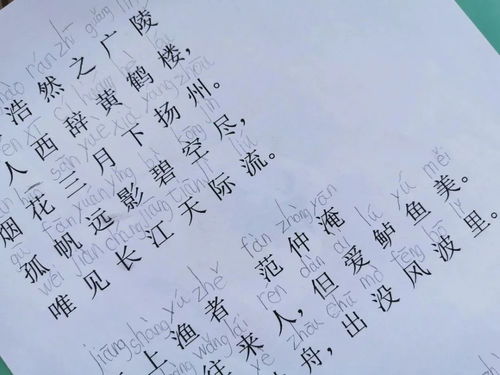 rán zhī guǎng
浩然之广陵
人西辞黄鹤楼，
sān yuè xià yáng zhōu
烟花三月下扬州。
gū fān yuǎn yǐng bì kōng
孤帆远影碧空尽，
wéi jiàn cháng jiāng tiān jì liú
唯见长江天际流。
jiāng shàng yú zhě fàn zhòng yān
上渔者 范仲淹
wǎng lái rén dàn ài lú yú měi
往来人，但爱鲈鱼美。
yè zhōu chū mò fēng bō lǐ
舟，出没风波里。